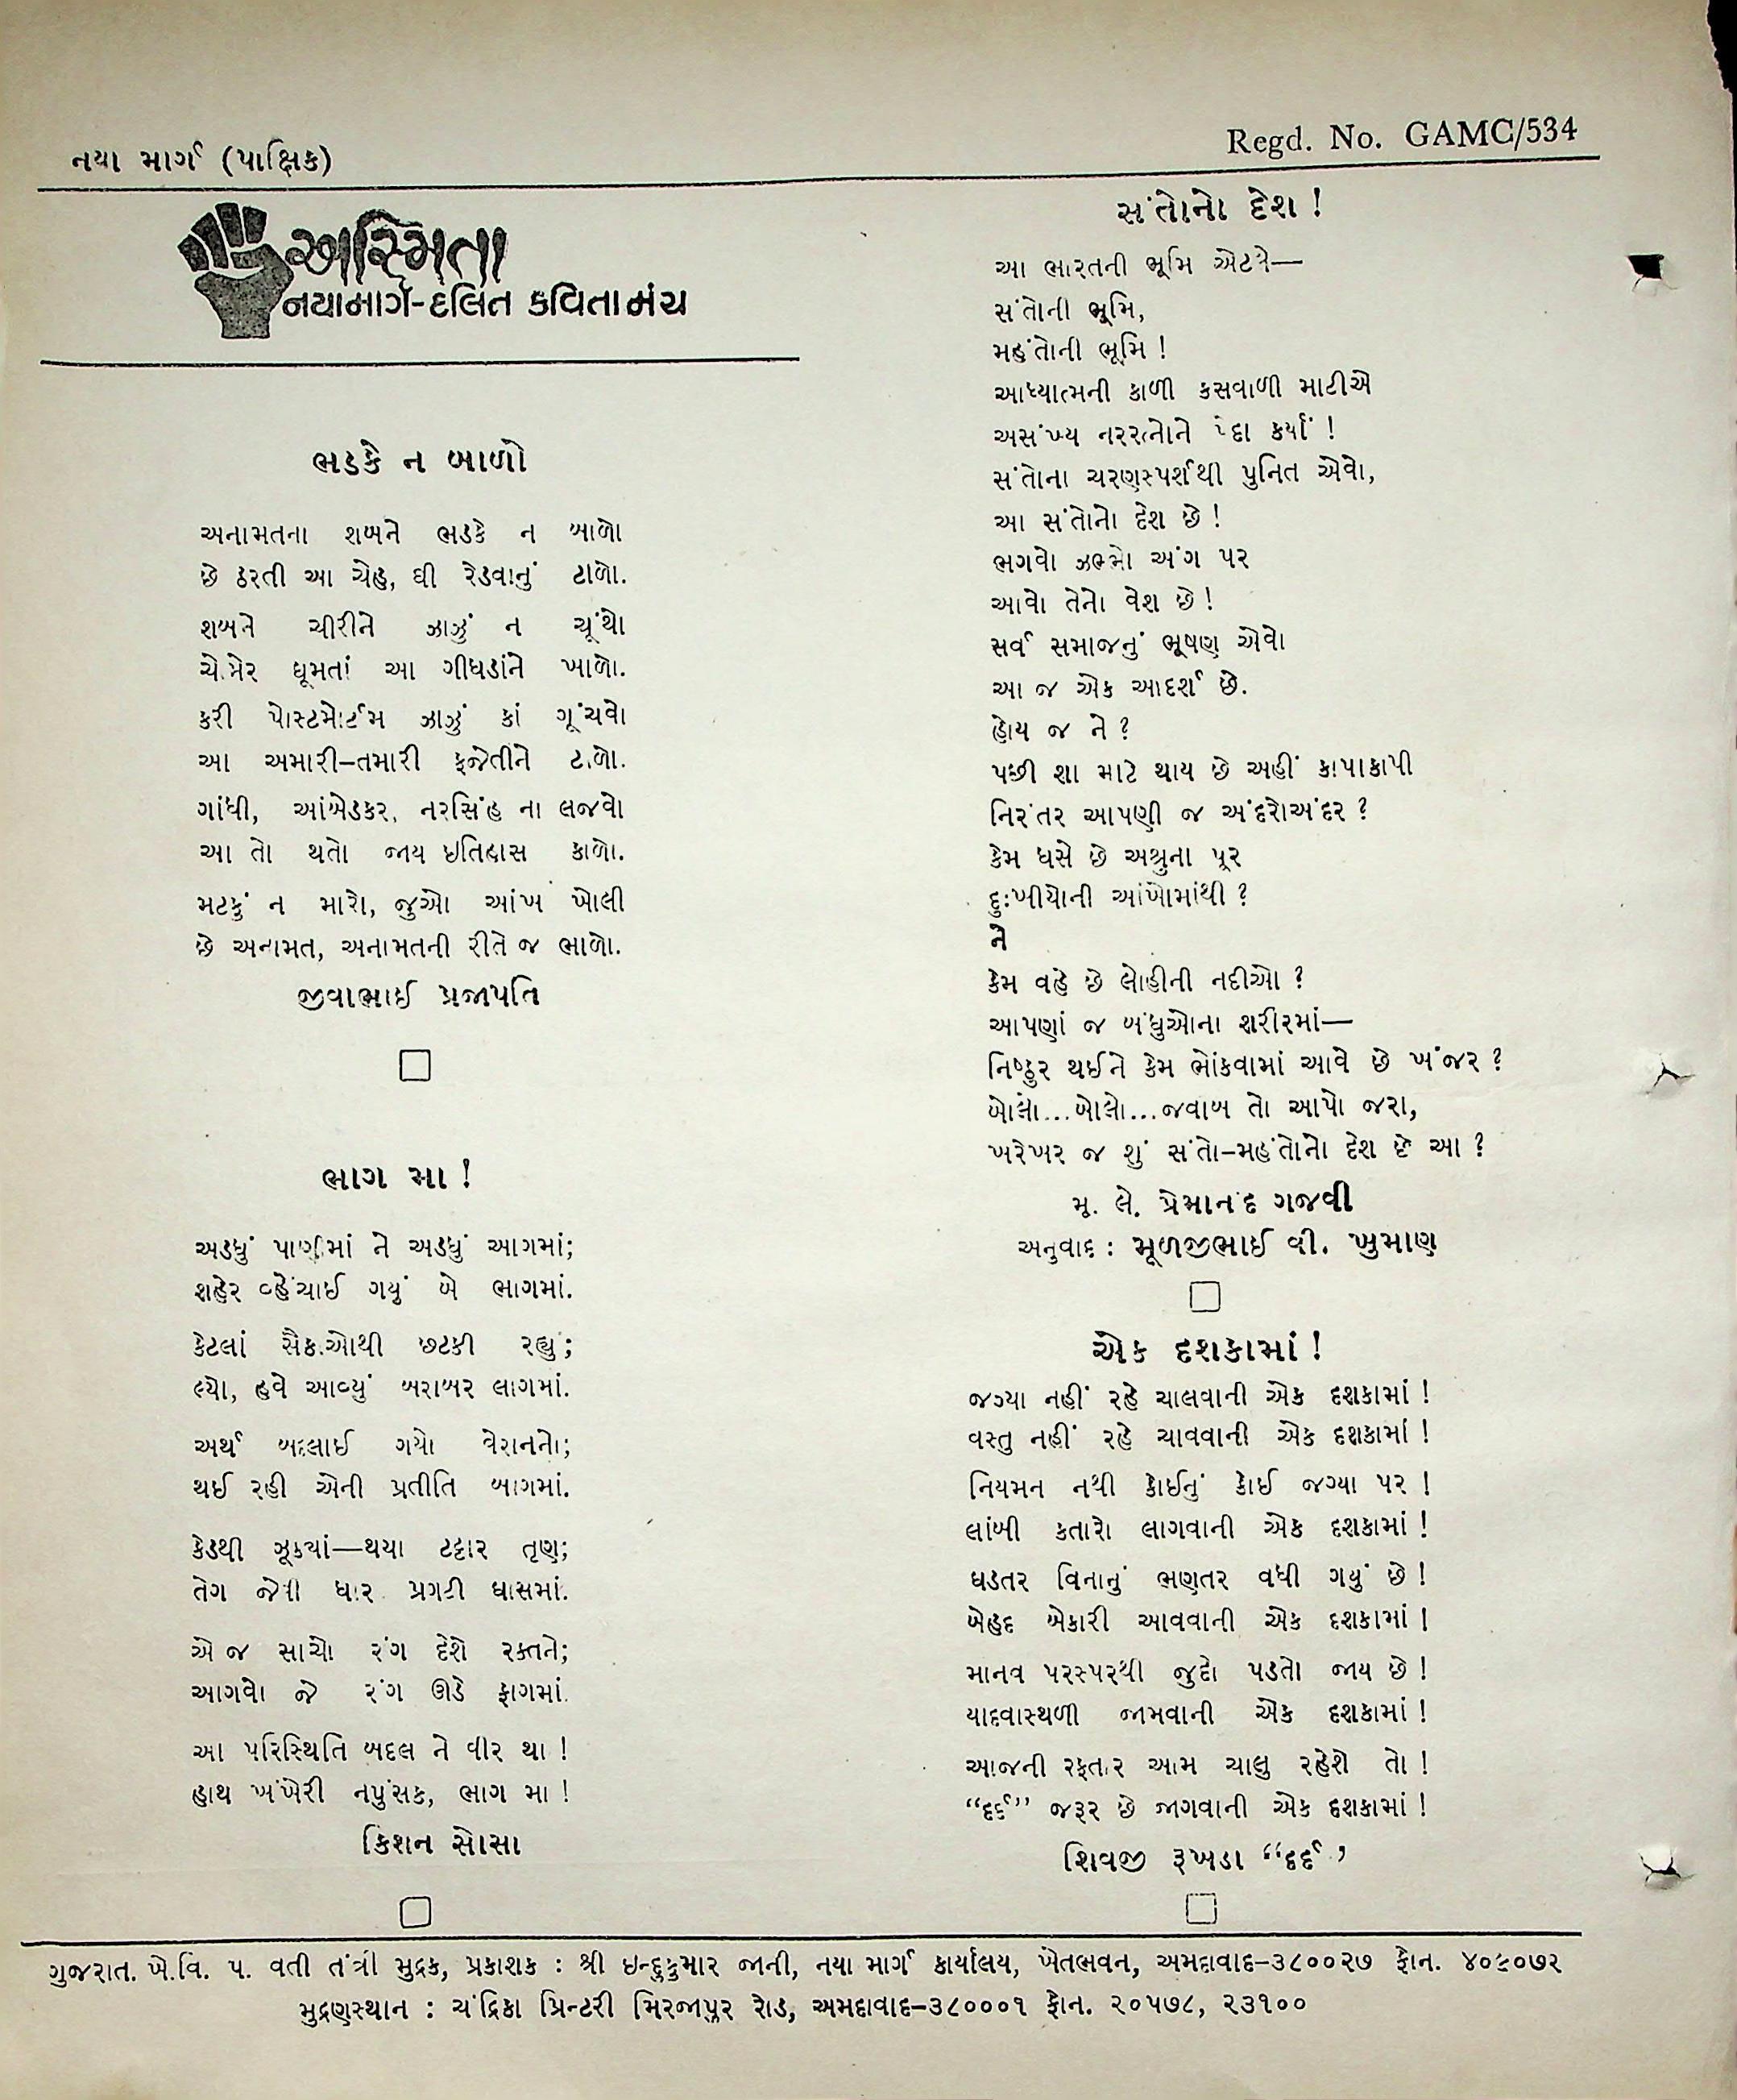 નયા માર્ગ (પાક્ષિક)
Regd. No. GAMC/534
અસ્મિતા
નયામાર્ગ-દલિત કવિતામંચ
ભડકે ન બાળો
અનામતના શબને ભડકે ન બાળો
છે ઠરતી આ ચેહ, ઘી રેડવાનું ટાળો.
શબને ચીરીને ઝાઝું ન ચૂંથો
ચોમેર ઘૂમતાં આ ગીધડાંને ખાળો.
કરી પોસ્ટમોર્ટમ ઝાઝું કાં ગૂંચવો
આ અમારી–તમારી ફજેતીને ટાળો.
ગાંધી, આંબેડકર, નરસિંહ ના લજવો
આ તો થતો જાય ઇતિહાસ કાળો.
મટકું ન મારો, જુઓ આંખ ખોલી
છે અનામત, અનામતની રીતે જ ભાળો.
જીવાભાઈ પ્રજાપતિ
ભાગ મા !
અડધું પાણીમાં ને અડધું આગમાં;
શહેર વ્હેંચાઈ ગયું બે ભાગમાં.
કેટલાં સૈકાઓથી છટકી રહ્યુ;
લ્યો, હવે આવ્યું બરાબર લાગમાં.
અર્થ બદલાઈ ગયો વેરાનનો;
થઈ રહી એની પ્રતીતિ બાગમાં.
કેડથી ઝૂક્યાં—થયા ટટ્ટાર તૃણ;
તેગ જેવી ધાર પ્રગટી ઘાસમાં.
એ જ સાચો રંગ દેશે રક્તને;
આગવો જે રંગ ઊડે ફાગમાં.
આ પરિસ્થિતિ બદલ ને વીર થા !
હાથ ખંખેરી નપુંસક, ભાગ મા !
કિશન સોસા
સંતોનો દેશ !
આ ભારતની ભૂમિ એટલે—
સંતોની ભૂમિ,
મહંતોની ભૂમિ !
આધ્યાત્મની કાળી કસવાળી માટીએ
અસંખ્ય નરરત્નોને પેદા કર્યાં !
સંતોના ચરણસ્પર્શથી પુનિત એવો,
આ સંતોનો દેશ છે !
ભગવો ઝભ્ભો અંગ પર
આવો તેનો વેશ છે !
સર્વ સમાજનું ભૂષણ એવો
આ જ એક આદર્શ છે.
હોય જ ને ?
પછી શા માટે થાય છે અહીં કાપાકાપી
નિરંતર આપણી જ અંદરોઅંદર ?
કેમ ધસે છે અશ્રુના પૂર
દુઃખીયોની આંખોમાંથી ?
ને
કેમ વહે છે લોહીની નદીઓ ?
આપણાં જ બંધુઓના શરીરમાં—
નિષ્ઠુર થઈને કેમ ભોંકવામાં આવે છે ખંજર ?
બોલો...બોલો...જવાબ તો આપો જરા,
ખરેખર જ શું સંતો–મહંતોનો દેશ છે આ ?
મૂ. લે. પ્રેમાનંદ ગજવી
અનુવાદ : મૂળજીભાઈ વી. ખુમાણ
એક દશકામાં !
જગ્યા નહીં રહે ચાલવાની એક દશકામાં !
વસ્તુ નહીં રહે ચાવવાની એક દશકામાં !
નિયમન નથી કોઈનું કોઈ જગ્યા પર !
લાંબી કતારો લાગવાની એક દશકામાં !
ઘડતર વિનાનું ભણતર વધી ગયું છે !
બેહદ બેકારી આવવાની એક દશકામાં !
માનવ પરસ્પરથી જુદો પડતો જાય છે !
યાદવાસ્થળી જામવાની એક દશકામાં !
આજની રફતાર આમ ચાલુ રહેશે તો !
“દર્દ” જરૂર છે જાગવાની એક દશકામાં !
શિવજી રૂખડા “દર્દ”
ગુજરાત. ખે.વિ. પ. વતી તંત્રી મુદ્રક, પ્રકાશક : શ્રી ઇન્દુકુમાર જાની, નયા માર્ગ કાર્યાલય, ખેતભવન, અમદાવાદ–૩૮૦૦૨૭ ફોન. ૪૦૬૦૭૨
મુદ્રણસ્થાન : ચંદ્રિકા પ્રિન્ટરી મિરજાપુર રોડ, અમદાવાદ–૩૮૦૦૦૧ ફોન. ૨૦૫૭૮, ૨૩૧૦૦